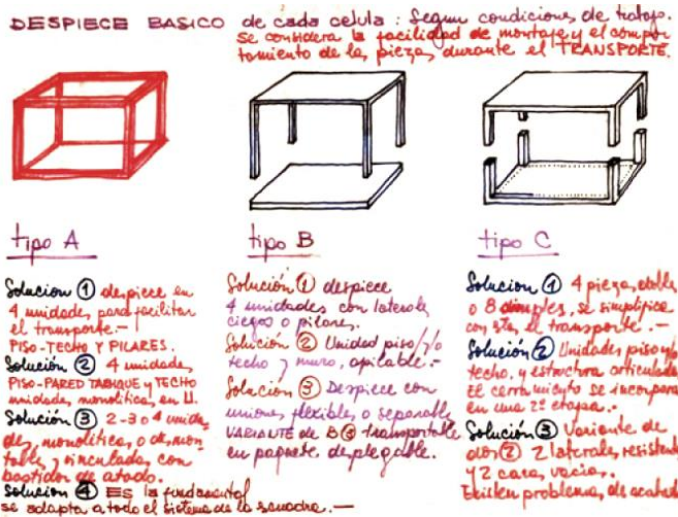 DESPIECE BASICO de cada celula : Segun condiciones de trabajo.
se considera la facilidad de montaje y el compor
tamiento de las piezas durante el TRANSPORTE.
tipo A
Solucion ① despiece en
4 unidades para facilitar
el transporte.—
PISO-TECHO Y PILARES.
Solución ② 4 unidades
PISO-PARED TABIQUE y TECHO
unidades monolíticas en U.
Solución ③ 2-3 o 4 unida
des, monolíticas o desmon
tables, vinculadas con
bastidor de atado.
Solucion ④ Es la fundamental
se adapta a todo el sistema de la
tipo B
Solución ① despiece
4 unidades con laterales
ciegos o pilares.
Solución ② Unidad piso y/o
techo y muro, apilable.-
Solución ③ Despiece con
uniones flexibles o separable
VARIANTE de B③ transportable
en paquete desplegable.
tipo C
Solución ① 4 piezas dobles
o 8 simples, se simplifica
con esta el transporte.—
Solución ② Unidades piso y/o
techo, y estructura articulada
El cerramiento se incorpora
en una 2ª etapa..
Solución ③ Variante de
② 2 laterales resistent
y 2 caras vacias..
Existen problemas de acabad